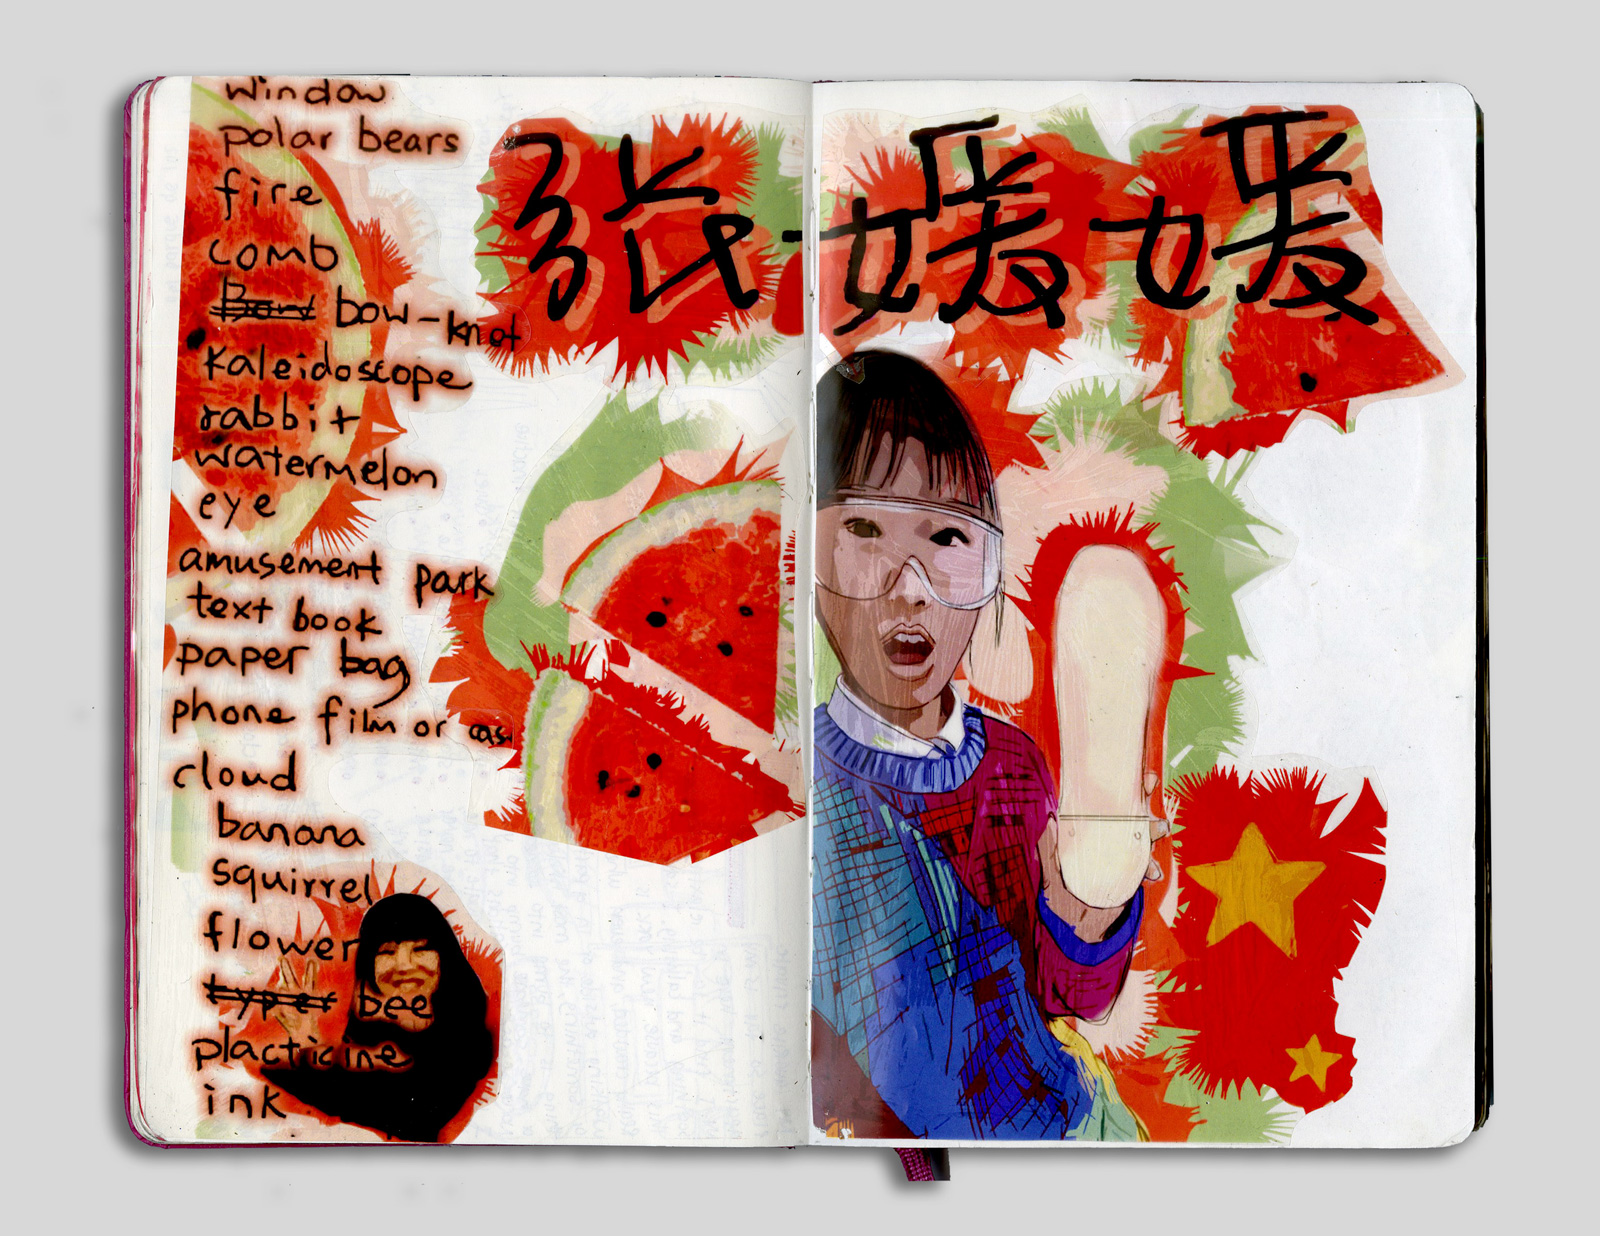 window
polar bears
fire
comb
Bow bow-knot
kaleidoscope
rabbit
watermelon
eye
amusement park
text book
paper bag
phone film or cas
cloud
banana
squirrel
flower
typer bee
placticine
ink
张媛媛